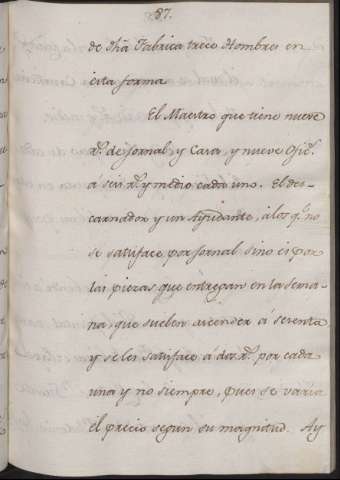 87.
de dhã Fabrica trece Hombres en
esta forma
El Maestro que tiene nueve
rs. de jornal, y Casa, y nueve Ofics.
á seis rs. y medio cada uno. El des-
carnador y un Ayudante, á los qe. no
se satisface por jornal sino es por
las piezas que entregan en la sema-
na, que suelen ascender á sesenta,
y se les satisface á dos rs. por cada
una y no siempre, pues se varia
el precio segun su magnitud. Ay